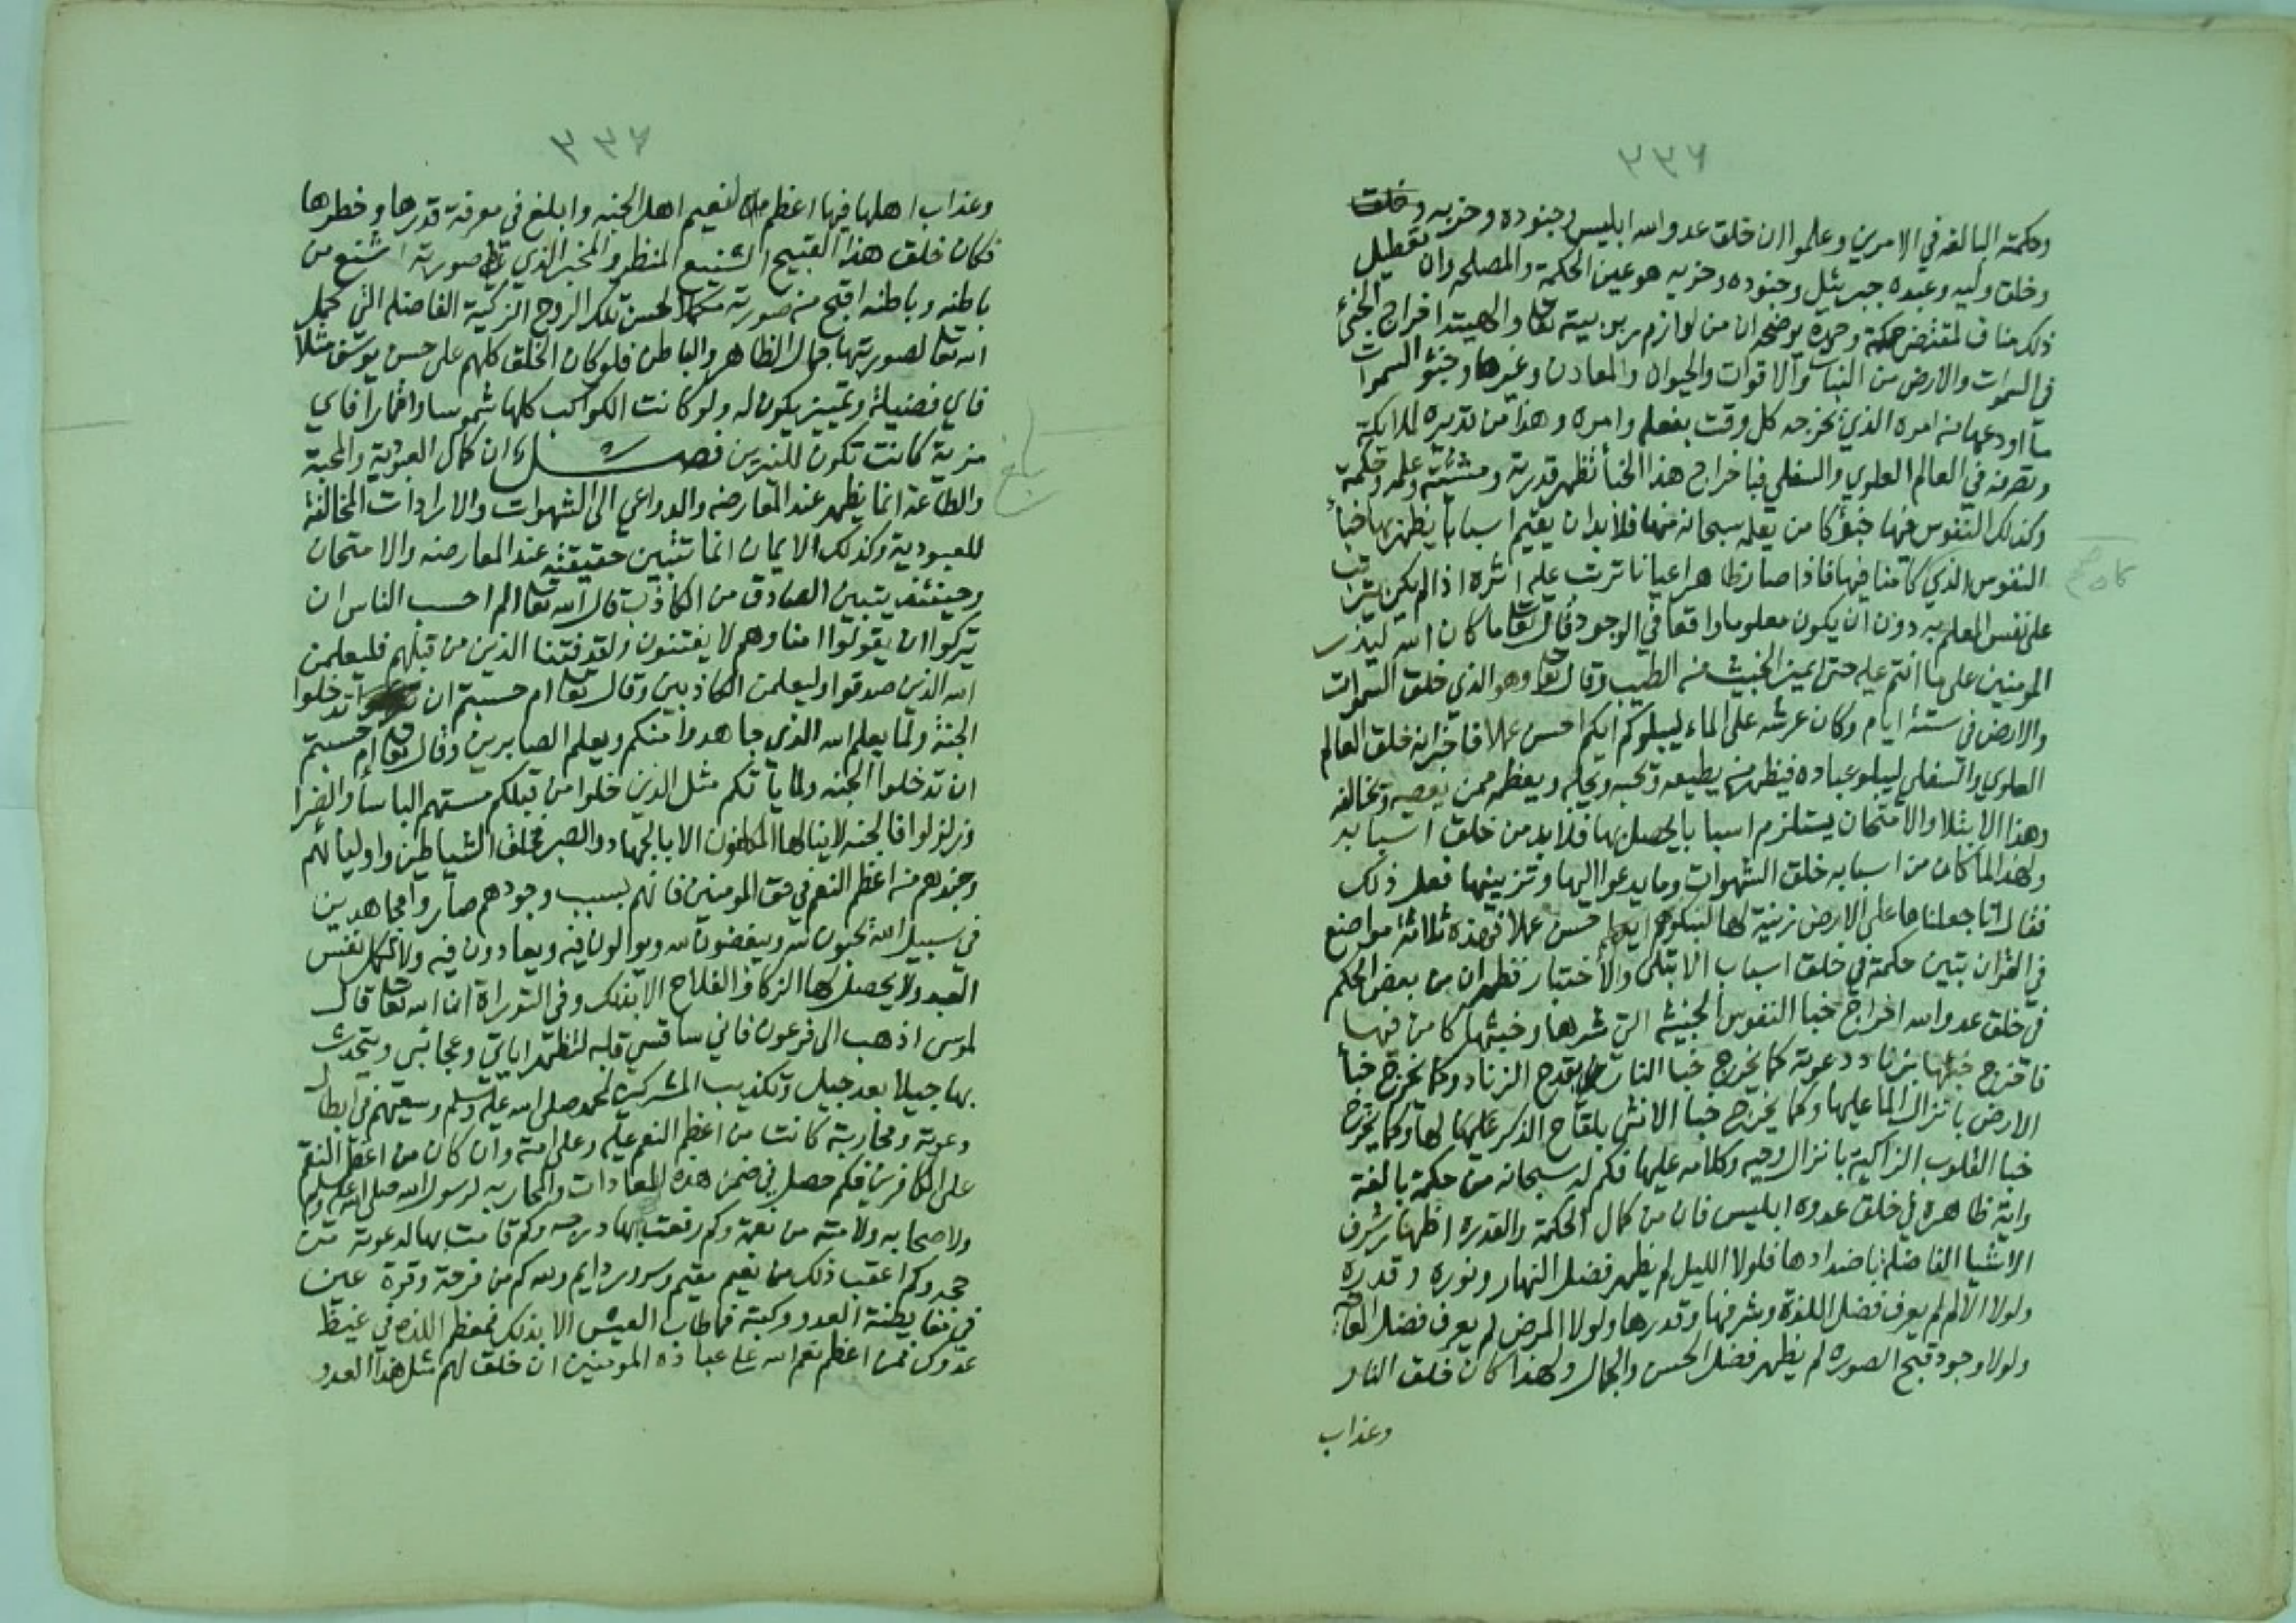 ٢٣٦
وحكمته البالغه في الامرين وعلموا ان خلق عدو الله ابليس وجنوده وحزبه وخلق
وخلق وليه وعبده جبريئل وجنوده وحزبه هو عين الحكمة والمصلحه وان تعطيل
ذلك مناف لمقتضى حكمته وحمده يوضحه ان من لوازم ربوبيته تعا والهيته اخراج الخبئ
في السموات والارض من النبات والاقوات والحيوان والمعادن وغيرها وخبئ السموات
ما اودعها من امره الذي يخرجه كل وقت بفعله وامره وهذا من تدبيره للملايكة
وتصرفه في العالم العلوي والسفلي فباخراج هذا الخبأ تظهر قدرته ومشيئته وعلمه وحكمته
وكذلك النفوس فيها خبؤ كامن يعلمه سبحانه منها فلا بد ان يقيم اسبابا يظهر بها خبأ
النفوس الذي كامنا فيها فاذا صار ظاهرا عيانا ترتب عليه اثره اذا لم يكن يترتب
كان صح
على نفس العلم به دون ان يكون معلوما واقعا في الوجود قال تعا ما كان الله ليذر
المومنين على ما انتم عليه حتى يميز الخبيث من الطيب وقال تعا وهو الذي خلق السموات
والارض في ستة ايام وكان عرشه على الماء ليبلوكم ايكم احسن عملا فاخبر انه خلق العالم
العلوي والسفلي ليبلو عباده فيظهر من يطيعه ويحبه ويجله ويعظمه ممن يعصيه ويخالفه
وهذا الابتلا والامتحان يستلزم اسبابا يحصل بها فلا بد من خلق اسبابه
ولهذا لما كان من اسبابه خلق الشهوات وما يدعوا اليها وتزيينها فعل ذلك
فقال انا جعلنا ما على الارض زينة لها لنبلوهم ايهم احسن عملا فهذه ثلاثة مواضع
في القران تبين حكمته في خلق اسباب الابتلى والاختبار فظهر ان من بعض الحكم
في خلق عدو الله اخراج خبا النفوس الخبيثه التي شرها وخبثها كامن فيها
فاخرج خبئها بزناد دعوته كما يخرج خبا النار بقدح الزناد وكما يخرج خبأ
الارض بانزال الما عليها وكما يخرج خبا الانثى بلقاح الذكر عليها لها وكما يخرج
خبا القلوب الزاكية بانزال وحيه وكلامه عليها فكم له سبحانه من حكمة بالغة
واية ظاهره في خلق عدوه ابليس فان من كمال الحكمة والقدره اظهار شرف
الاشيا الفاضله باضدادها فلولا الليل لم يظهر فضل النهار ونوره وقدره
ولولا الالم لم يعرف فضل اللذة وشرفها وقدرها ولولا المرض لم يعرف فضل العافية
ولولا وجود قبح الصوره لم يظهر فضل الحسن والجمال ولهذا كان خلق النار
وعذاب
٢٣٧
وعذاب اهلها فيها اعظم لنعيم اهل الجنه وابلغ في معرفة قدرها وخطرها
فكان خلق هذا القبيح الشنيع المنظر والمخبر الذي صورته اشنع من
باطنه وباطنه اقبح من صورته مكملا لحسن تلك الروح الزكية الفاضله التي كمل
الله تعا لصورتها جمال الظاهر والباطن فلو كان الخلق كلهم على حسن يوسف مثلا
فاي فضيلة وتمييز يكون له ولو كانت الكواكب كلها شموسا واقمارا فاي
مزية كانت تكون للنيرين فصل ان كمال العبودية والمحبة
بلغ
والطاعة انما يظهر عند المعارضه والدواعي الى الشهوات والارادات المخالفة
للعبودية وكذلك الايمان انما تتبين حقيقته عند المعارضه والامتحان
وحينئذ يتبين الصادق من الكاذب قال الله تعا الم احسب الناس ان
يتركوا ان يقولوا امنا وهم لا يفتنون ولقد فتنا الذين من قبلهم فليعلمن
الله الذين صدقوا وليعلمن الكاذبين وقال تعا ام حسبتم ان تدخلوا
الجنة ولما يعلم الله الذين جاهدوا منكم ويعلم الصابرين وقال تعا ام حسبتم
ان تدخلوا الجنه ولما ياتكم مثل الذين خلوا من قبلكم مستهم الباسأ والضرا
وزلزلوا فالجنه لا ينالها المكلفون الا بالجهاد والصبر فخلق الشياطين واوليائهم
وجندهم من اعظم النعم في حق المومنين فانهم بسبب وجودهم صاروا مجاهدين
في سبيل الله يحبون لله ويبغضون لله ويوالون فيه ويعادون فيه ولا تكمل نفس
العبد ولا يحصل لها الزكا والفلاح الا بذلك وفي التوراة ان الله تعا قال
لموسى اذهب الى فرعون فاني ساقسي قلبه لتظهر اياتي وعجائبي ويتحدث
بها جيلا بعد جيل وتكذيب المشركين لمحمد صلى الله عليه وسلم وسعيهم في ابطال
دعوته ومحاربته كانت من اعظم النعم عليه وعلى امته وان كان من اعظم النقم
على الكافرين فكم حصل في ضمن هذه المعادات والمحاربه لرسول الله صلى الله عليه وسلم
ولاصحابه ولامته من نعمة وكم رفعت بها درجه وكم قامت بها لدعوته من
حجه وكم اعقب ذلك من نعيم مقيم وسرور دايم ولله كم من فرحة وقرة عين
في مغايظة العدو وكبته فما طاب العيش الا بذلك فمعظم اللذه في غيظ
عدوك فمن اعظم نعم الله على عباده المومنين ان خلق لهم مثل هذا العدو